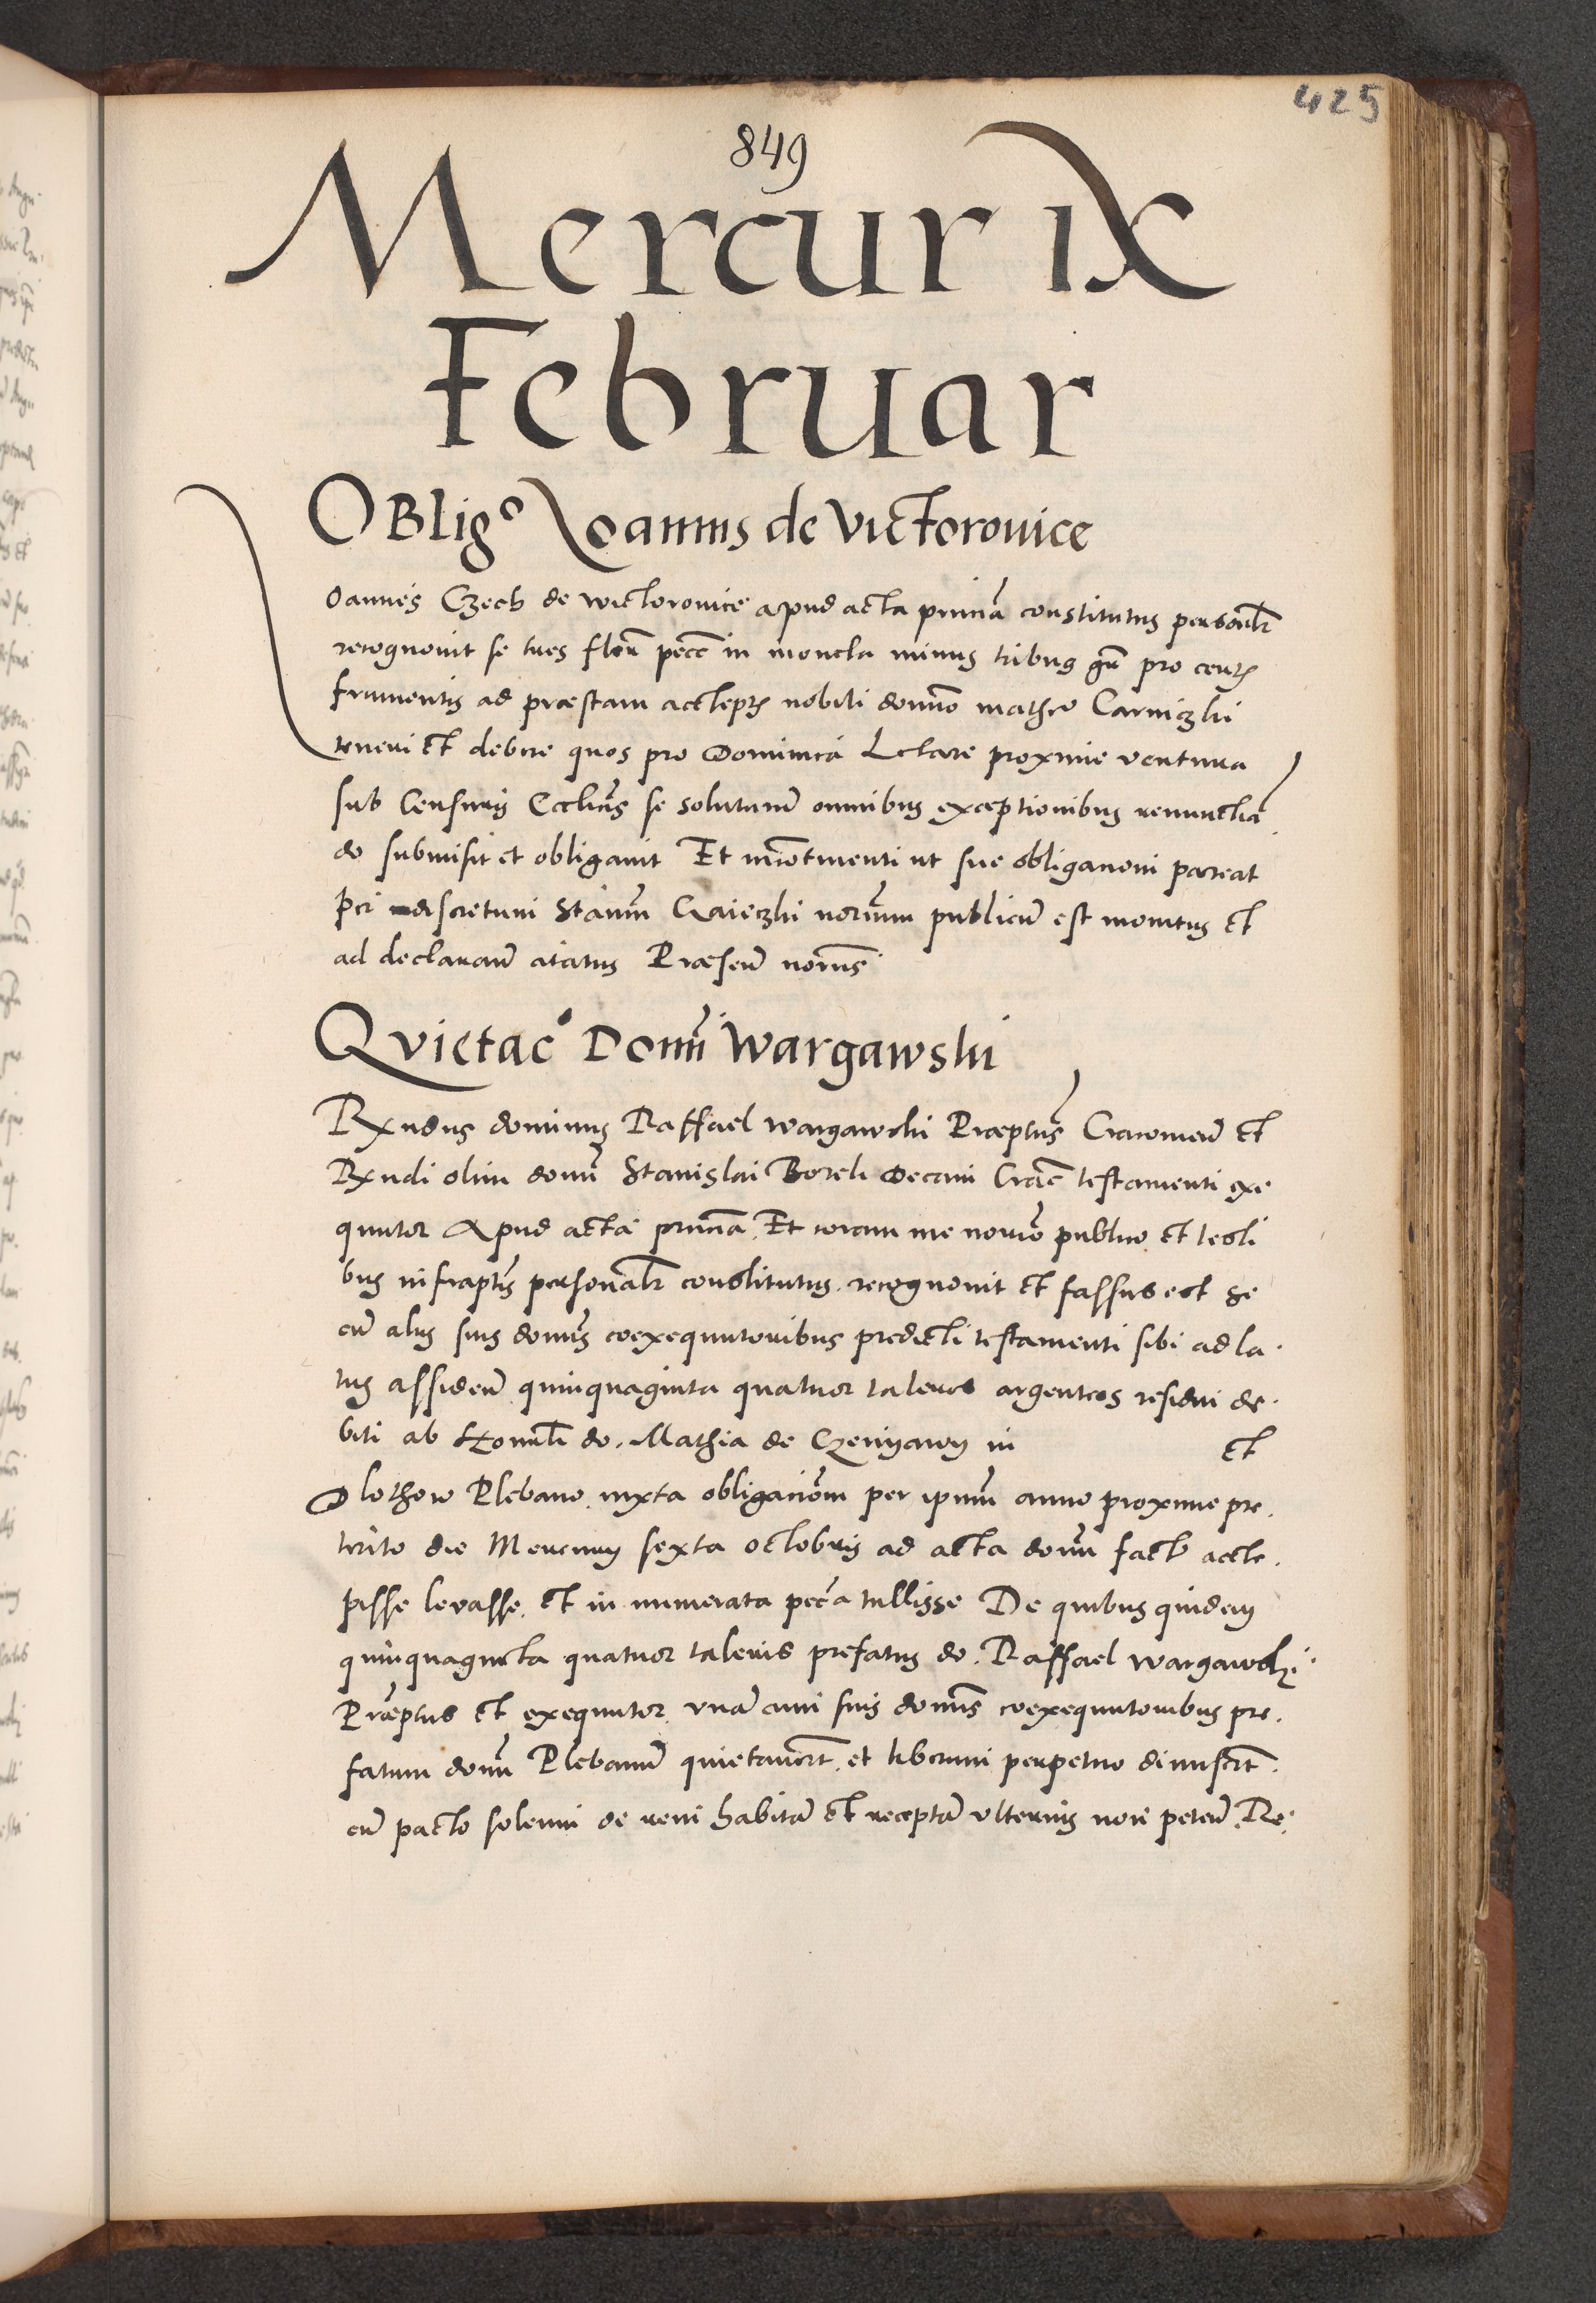 425
849
Mercur ıx
Februar
OBligº Ioannis de victorovice
Ioannes Czech de wictorovice apud acta pnticia constitutus personalr
recognovit se tres floru pecc in moneta minus tribus gr pro certis
frumentis ad præstam acceptis nobili domino matheo Carniczki
teneri et debere quos pro Dominica Letare proxime ventura
sub Censuris Ecclicis se soluturum omnibus exceptionibus renunctia
do submisit et obligavit Et ut sue obligationi pareat
per discretum Stanum notarium publicum est monitus et
ad declarandum citatus Præsen notarius
Qvietacº Domi Wargawski
Rxndus dominus Raffael wargawski Præptus Cracovien et
Rxndi olim domi Stanislai Borek Decani Crac testamenti exe
quutor Apud acta Et coram me notario publico et testi
bus infraptis personalr constitutus recognovit et fassus est se
cu aliis suis domis coexequutoribus predicti testamenti sibi ad la.
tus assiden quinquaginta quatuor taleros argenteos residui de.
biti ab Honorabili do. Mathia de in et
Olothow Plebano iuxta obligationem per ipsum anno proxime pre.
terito die Mercurij sexta octobris ad acta domi facta acce.
pisse levasse et in numerata pecca tullisse De quibus quidem
quinquaginta quatuor taleris prefatus do. Raffael wargawski
Præptus et exequutor una cum suis domis coexequutoribus pre.
fatum domi Plebanum quietaverunt et liberum perpetuo dimiserunt.
cu pacto solenni de re habita et recepta ulterius non peten Re.